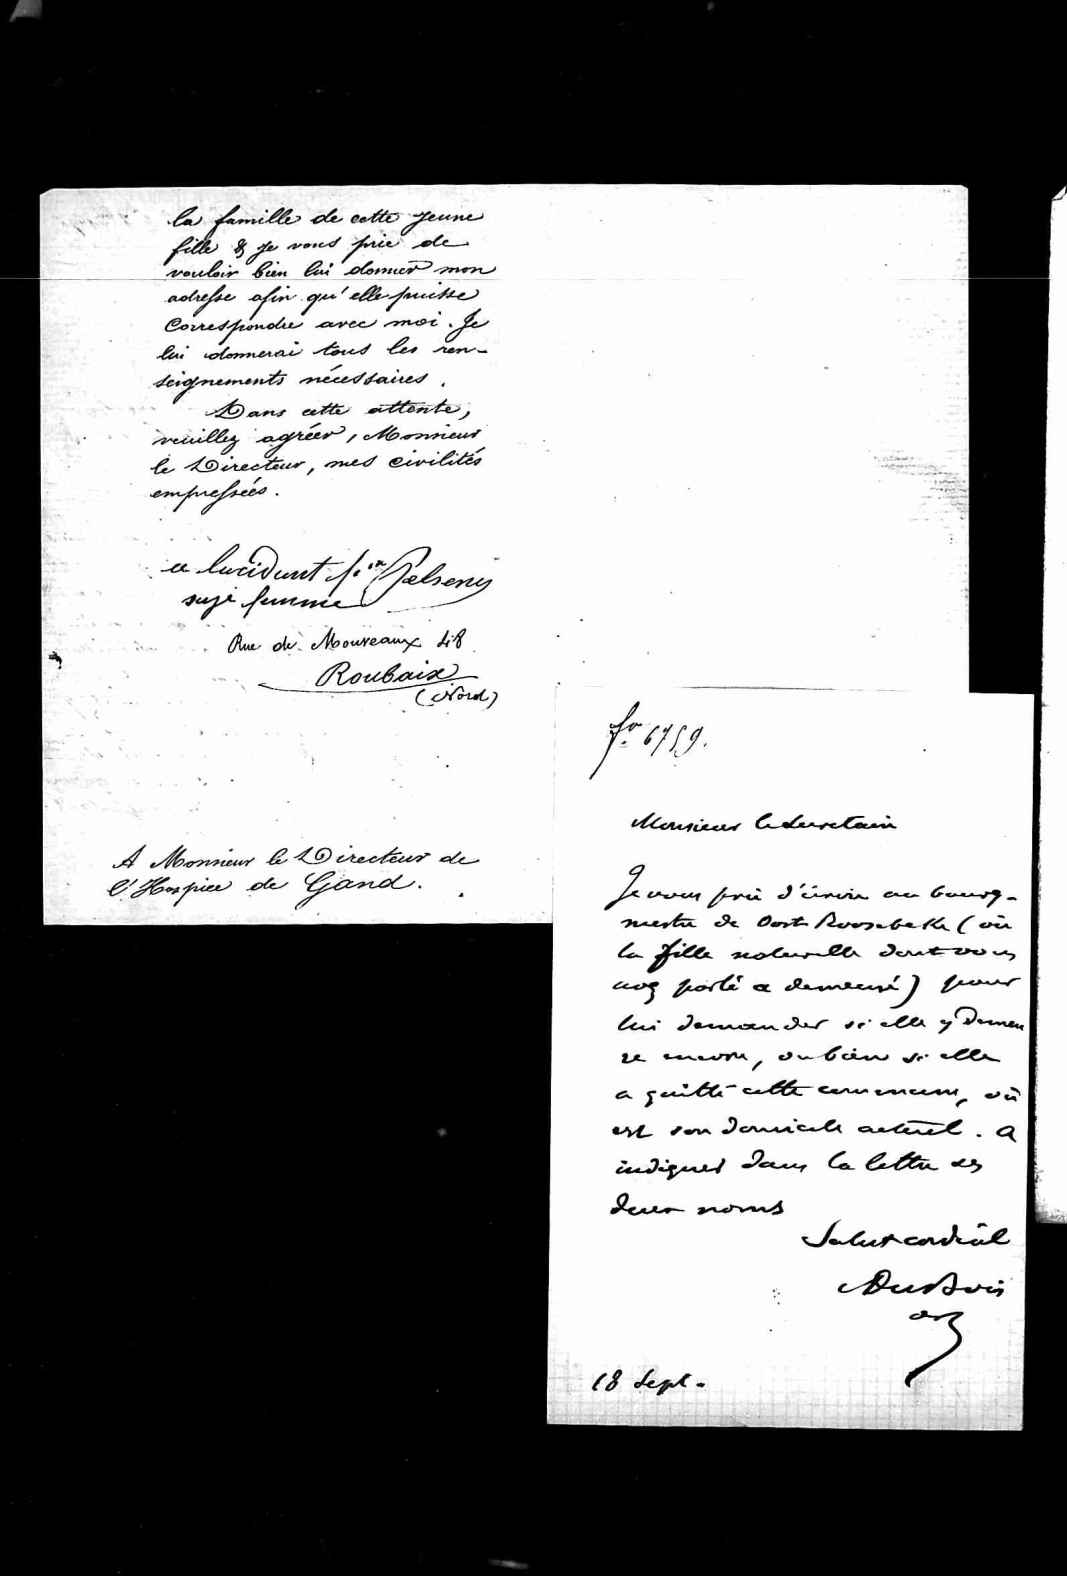 la famille de cette jeune
fille & je vous prie de
vouloir bien lui donner mon
adresse afin qu'elle puisse
Correspondre avec moi. Je
lui donnerai tous les ren-
seignements nécessaires.
Dans cette attente,
veuillez agréer, Monsieur
le Directeur, mes civilités
empressées.
sage femme
Rue de Mouveaux 48
Roubaix
(Nord)
A Monsieur le Directeur de
l'Hospice de Gand.
fo 6759.
Monsieur le Secretaire
Je vous prie d'écrire au bourg-
mestre de Oost Roosebeke (où
la fille naturelle dont vous
avez parlé a demeuré) pour
lui demander si elle y demeu
re encore, ou bien si elle
a quitté cette commune, où
est son domicile actuel. A
indiquer dans la lettre ses
deux noms
Salut cordial
DuBois
18 Sept.